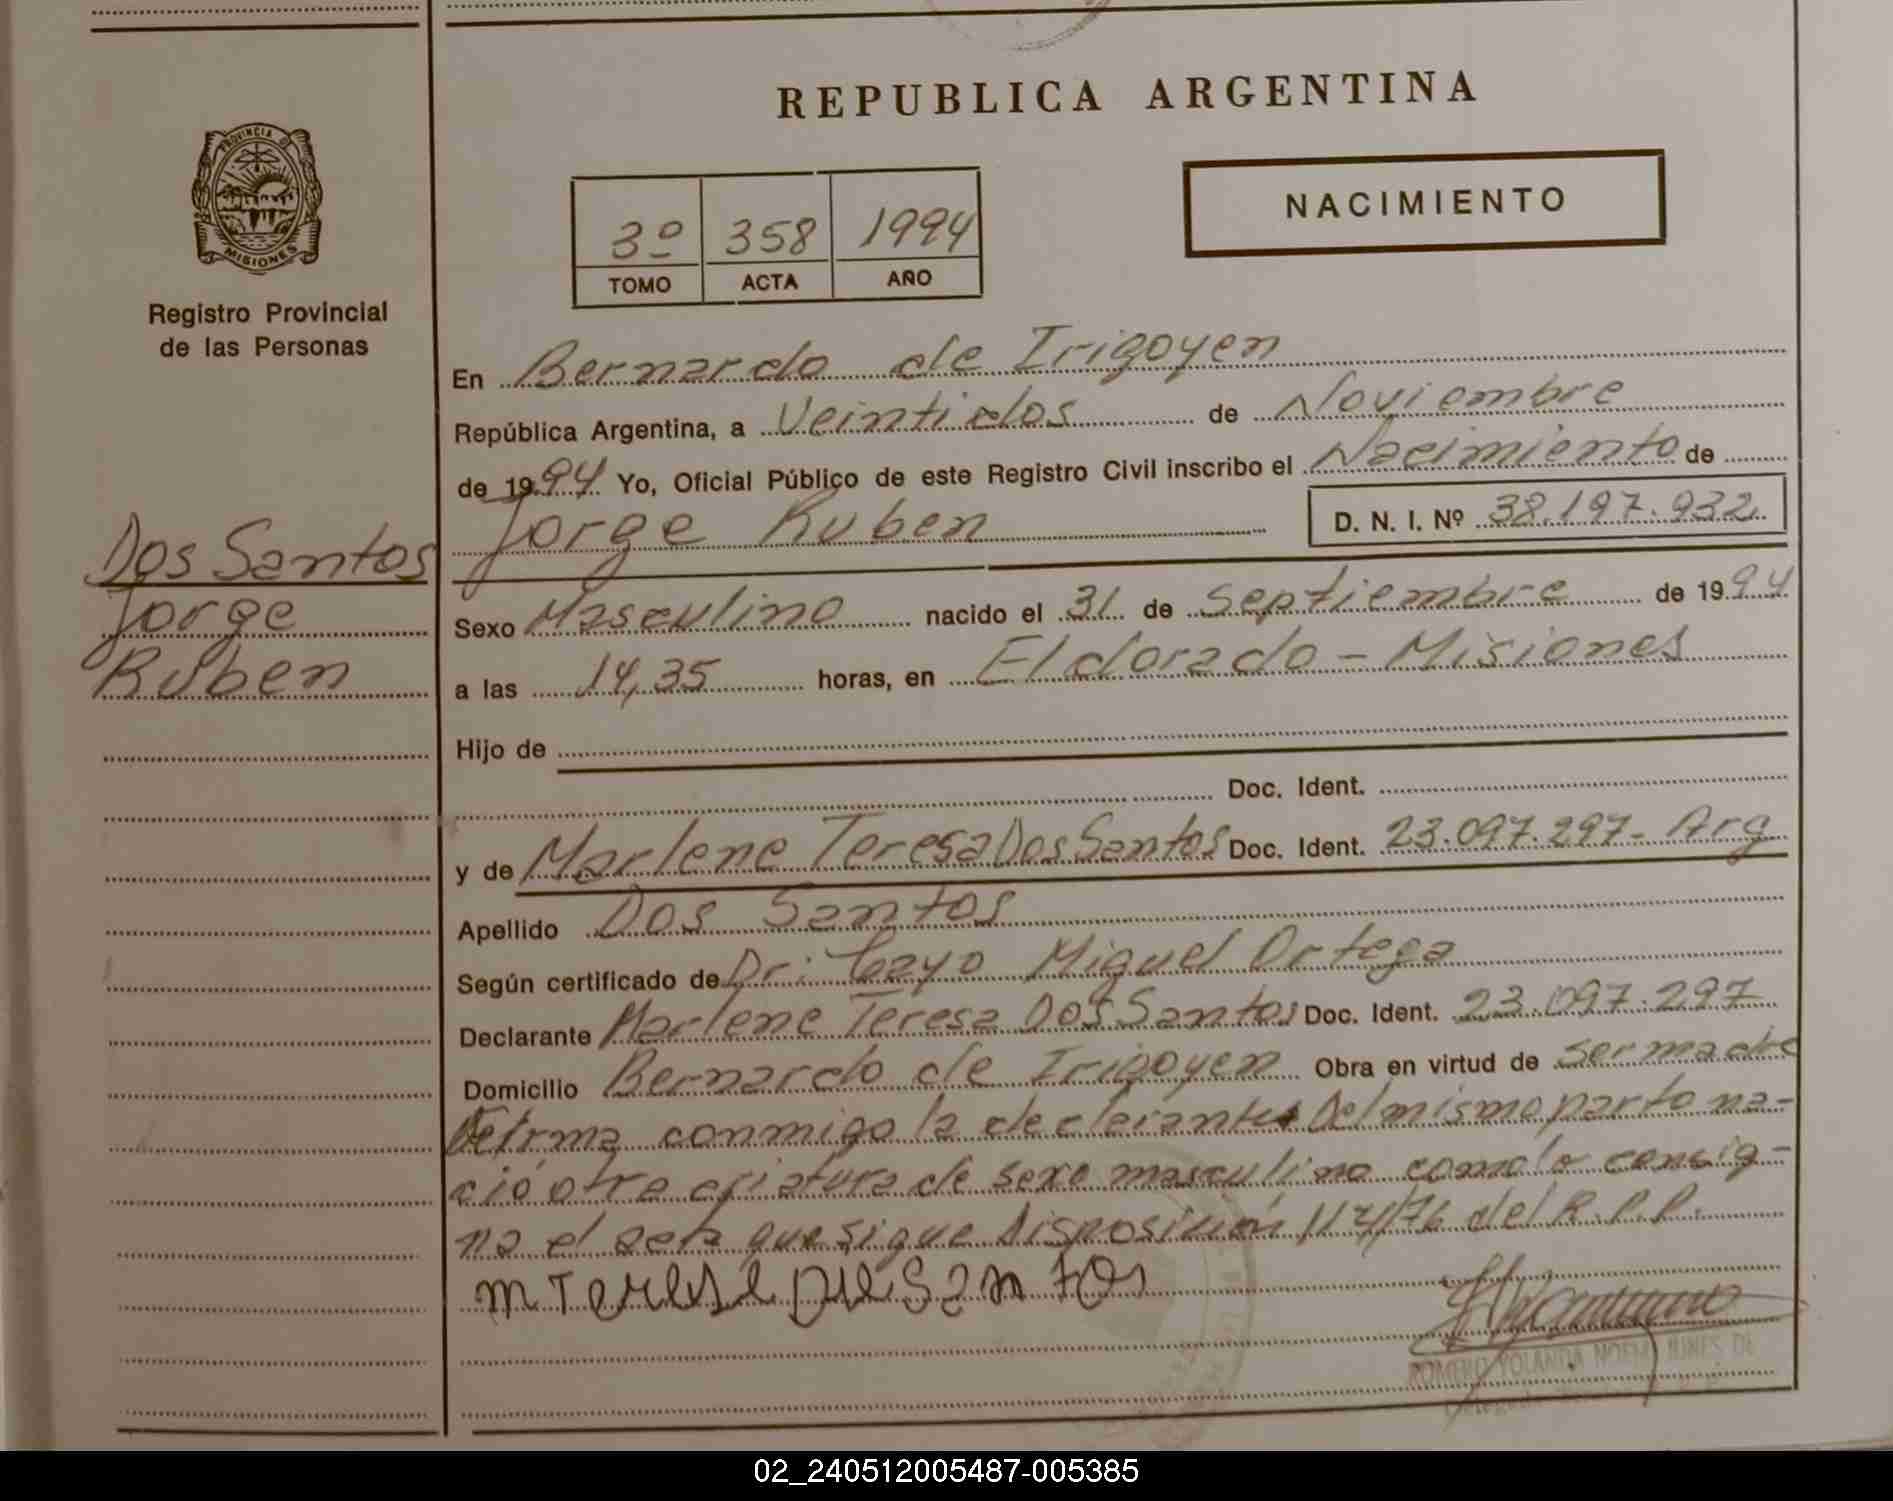 REPUBLICA ARGENTINA
PROVINCIA DE
MISIONES
Registro Provincial
de las Personas
3º 358 1994
TOMO ACTA AÑO
NACIMIENTO
Dos Santos
Jorge
Ruben
En Bernardo de Irigoyen
República Argentina, a Veintidos de Noviembre
de 1994 Yo, Oficial Público de este Registro Civil inscribo el Nacimiento de
Jorge Ruben D. N. I. Nº 38.197.932
Sexo Masculino nacido el 31 de Septiembre de 1994
a las 14,35 horas, en Eldorado - Misiones
Hijo de
Doc. Ident.
y de Marlene Teresa Dos Santos Doc. Ident. 23.097.297- Arg
Apellido Dos Santos
Según certificado de Dr: Cayo Miguel Ortega
Declarante Marlene Teresa Dos Santos Doc. Ident. 23.097.297
Domicilio Bernardo de Irigoyen Obra en virtud de ser madre
firma conmigo la declarante Del mismo parto na-
ció otra criatura de sexo masculino como lo consig-
na el acta que sigue Disposición 114/76 del R.P.P.
M Teresa Dos Santos
ROMERO YOLANDA NOEMI
02_240512005487-005385